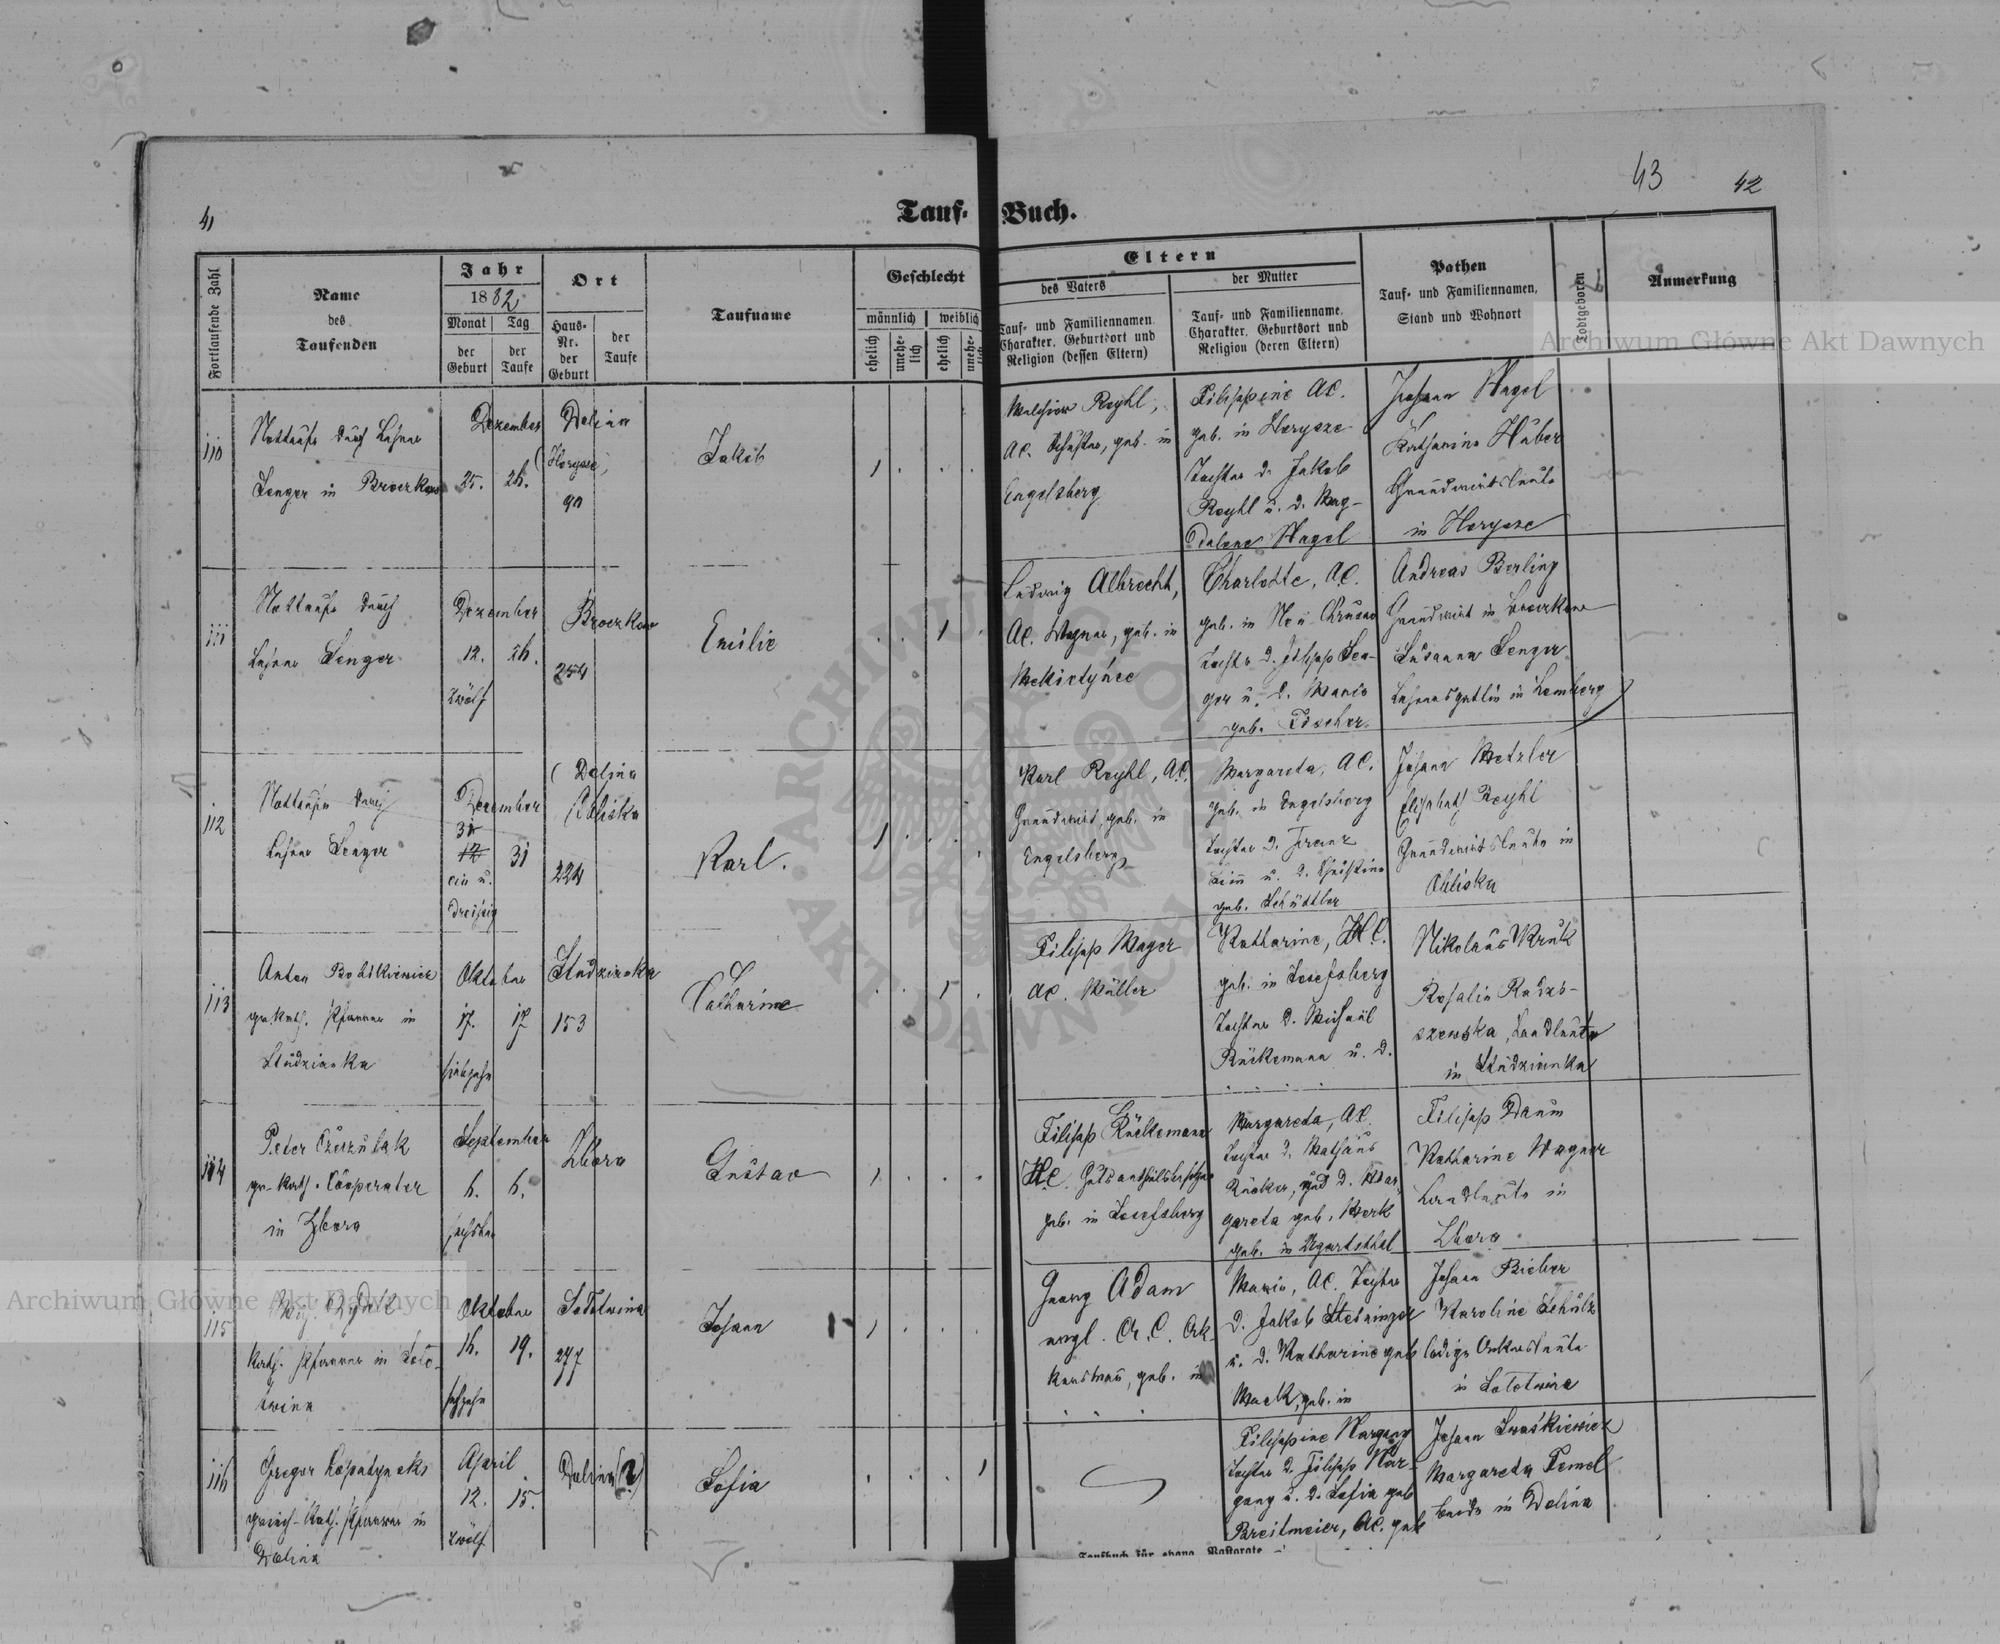 43
42
41
Tauf-Buch.
Fortlaufende Zahl
Name
des
Taufenden
Jahr
1882
Monat
Tag
der
Geburt
der
Taufe
Ort
Haus-
Nr.
der
Geburt
der
Taufe
Taufname
Geschlecht
männlich
weiblich
ehelich
unehe-
lich
ehelich
unehe-
Eltern
des Vaters
Tauf- und Familiennamen
Charakter, Geburtsort und
Religion (dessen Eltern)
der Mutter
Tauf- und Familienname,
Charakter, Geburtsort und
Religion (deren Eltern)
Pathen
Tauf- und Familiennamen,
Stand und Wohnort
Todtgeboren
Anmerkung
110
Nottaufe durch Lehrer
Senger in Broczkow
Dezember
25. 26.
Dolina
(Horysze)
Jakob
1
Melchior Reyhl,
AC. Schuster, geb. in
Engelsberg
Filippine AC.
geb. in Horysze
Tochter d. Jakob
Reyhl u. d. Mag-
dalena Nagel
Johann Nagel
Katharina Huber
Grundwirtsleute
in Horysze
111
Nottaufe durch
Lehrer Senger
Dezember
12. 26.
zwölf
Broczkow
254
Emilie
1
Ludwig Albrecht,
AC. Wagner, geb. in
Charlotte, AC.
geb. in Neu-Chrusno
Tochter d. Filipp Sen-
ger u. d. Maria
geb. Fischer
Andreas Berling
Grundwirt in Broczkow
Susanna Senger
Lehrersgattin in Lemberg
112
Nottaufe durch
Lehrer Senger
Dezember
31
31
ein u.
dreißig
(Dolina
Obliska
224
Karl.
1
Karl Reyhl, AC.
Grundwirt, geb. in
Engelsberg
Margareta, AC.
geb. in Engelsberg
Tochter d. Franz
u. d. Christina
geb. Schüttler
Johann Metzler
Elisabeth Reyhl
Grundwirtsleute in
Obliska
113
Anton
gr. kath. Pfarrer in
Studzianka
Oktober
17. 17
siebzehn
Studzianka
153
Catharina
1
Filipp Mayer
AC. Müller
Katharine, HC.
geb. in Josefsberg
Tochter d. Michael
Rückemann u. d.
. . . .
Nikolaus Kruk
Rosalia
szewska, Landleute
in Studzianka
114
Peter
gr. kath. Cooperator
in Zbora
September
6. 6.
sechsten
Zbora
Gustav
1
Filipp Rückemann
HC.
geb. in Josefsberg
Margareta, AC.
Tochter d. Mathäus
und d. Mar-
gareta geb. Merk
geb. in Ugartsthal
Filipp Daum
Katharine Wagner
Landleute in
Zbora
115
kath. Pfarrer in Soło-
twina
Oktober
16. 19.
sechzehn
Sołotwina
277
Johann
1
Georg Adam
evgl. A. C.
geb. in
. . .
Maria, AC. Tochter
d. Jakob
u. d. Katharine geb.
Mack, geb. in
Johann Bieber
Karoline Schulz
ledige Ackersleute
in Solotwina
116
Gregor
griech-kath. Pfarrer in
Dolina
April
12. 15.
zwölf
Dolina (?)
Sofia
1
Filippine Margang
Tochter d. Filipp Mar-
gang u. d. Sofia geb.
Breitmeier, AC. geb.
Johann Iwaśkiewicz
Margareta Femel
beide in Dolina
Taufbuch für evang. Pastorate
Archiwum Główne Akt Dawnych
Archiwum Główne Akt Dawnych
ARCHIWUM GŁÓWNE AKT DAWNYCH